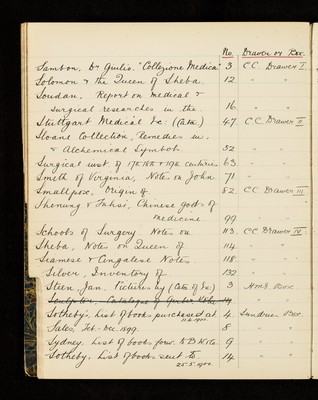 No. Drawer or Box.
Sambon, Dr Guilio. "Collezione Medica" 3 C.C. Drawer I
Solomon & the Queen of Sheba. 12 " "
Soudan, Report on medical &
surgical researches in the 16 " "
Stuttgart Medical &c: (Cata:) 47 C.C. Drawer II
Sloane Collection, Remedies in.
& Alchemical Symbols 52 " "
Surgical inst. of 17th 18th & 19th centuries 63 " "
Smith of Virginia, Notes on John 71 " "
Smallpox, Origin of. 82 C.C. Drawer III
Shenung & Fuhsi, Chinese gods of
medicine 99 " "
Schools of Surgery. Notes on 113 C.C. Drawer IV
Sheba, Notes on Queen of 114 " "
Siamese & Cingalese Notes 118 " "
Silver, Inventory of 132 " "
Steen Jan. Pictures by (Cata of Ex:) 3 Box
Sculptor. Catalogue of 14
Sotheby's, List of books purchased at 4 Sundries Box.
Sales, Feb-Dec. 1899. 8 " "
Sydney. List of books forw. to 9 " "
Sotheby. List of books sent to 14 " "
25.5.1900